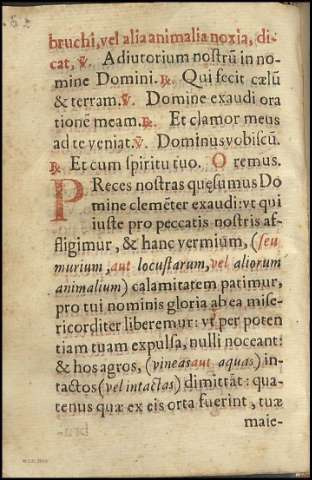 bruchi, vel alia animalia noxia, di-
cat, ℣. Adiutorium nostrũ in no-
mine Domini. ℟. Qui fecit cælũ
& terram. ℣. Domine exaudi ora
tionẽ meam. ℟. Et clamor meus
ad te veniat. ℣. Dominus vobiscũ.
℟. Et cum spiritu tuo. Oremus.
PReces nostras quęsumus Do
mine clemẽter exaudi: vt qui
iuste pro peccatis nostris af-
fligimur, & hanc vermium, (seu
murium, aut locustarum, vel aliorum
animalium) calamitatem patimur,
pro tui nominis gloria ab ea mise-
ricorditer liberemur: vt per poten
tiam tuam expulsa, nulli noceant:
& hos agros, (vineas aut aquas) in-
tactos (vel intactas) dimittãt: qua-
tenus quæ ex eis orta fuerint, tuæ
maie-